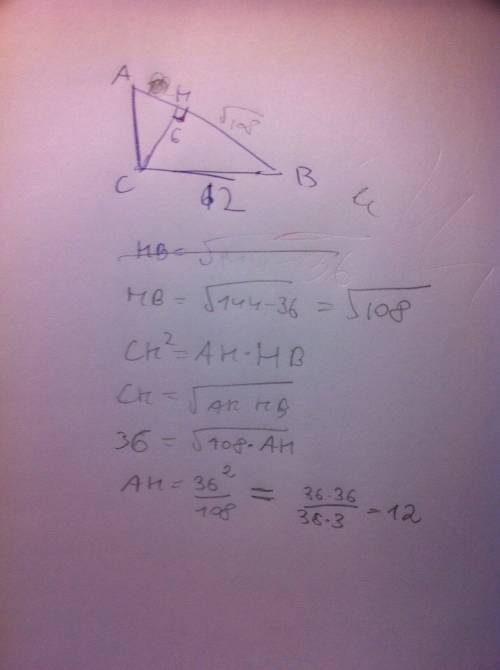 A
H
√108
6
C
B
12
HB = √
HB = √144-36 = √108
CH² = AH · HB
CH = √AH HB
36 = √108 · AH
AH = 36²/108 = 36·36/36·3 = 12